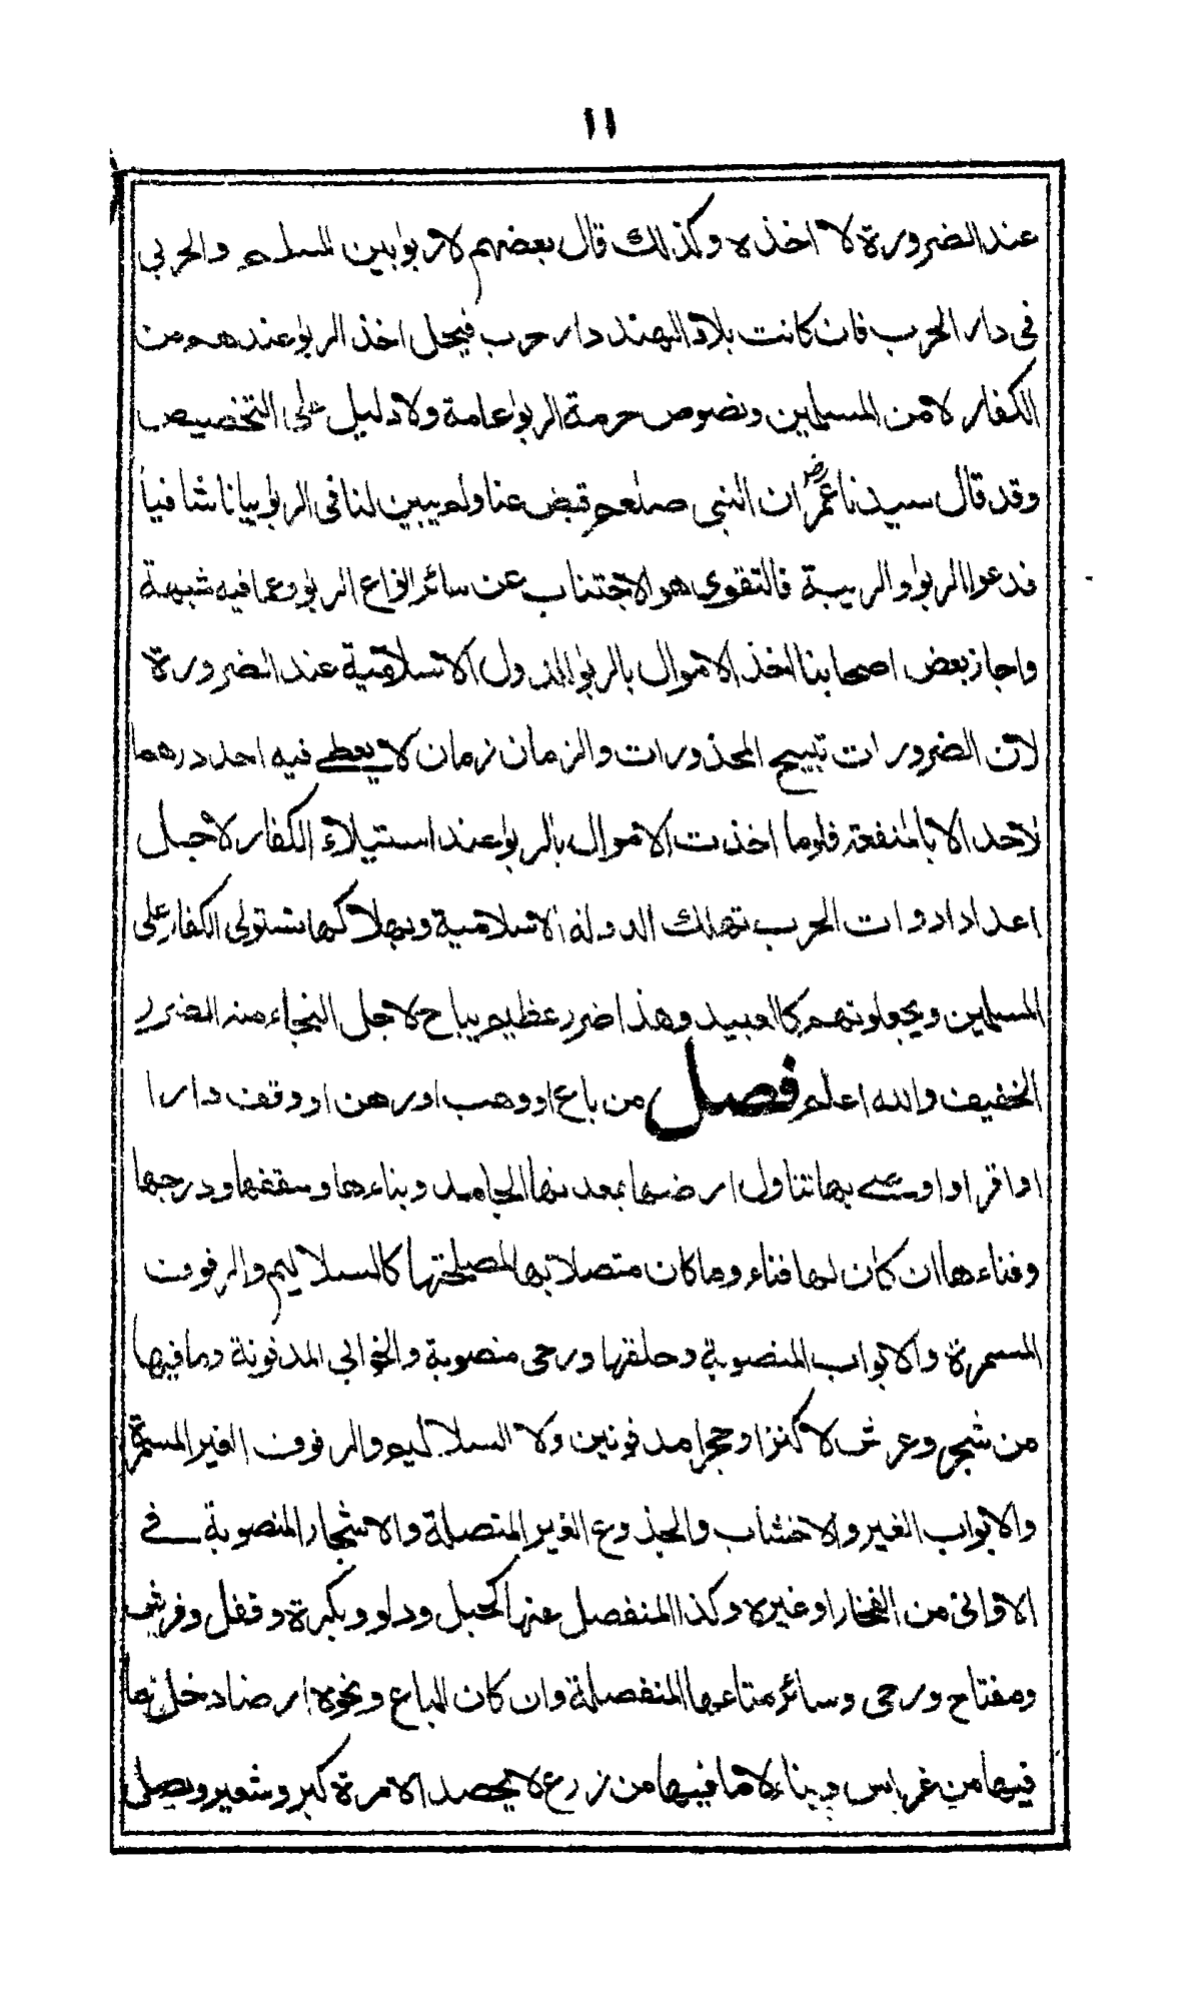 ١١
عند الضرورة لا اخذه وكذلك قال بعضهم لا ربوا بين المسلم والحربي
في دار الحرب فان كانت بلاد الهند دار حرب فيحل اخذ الربوا عندهم من
الكفار لا من المسلمين ونصوص حرمة الربوا عامة ولا دليل على التخصيص
وقد قال سيدنا عمر رض ان النبي صلعم قبض عنا ولم يبين لنا في الربوا بيانا شافيا
فدعوا الربوا والريبة فالتقوى هو الاجتناب عن سائر انواع الربوا وعما فيه شبهة
واجاز بعض اصحابنا اخذ الاموال بالربوا للدول الاسلامية عند الضرورة
لان الضرورات تبيح المحذورات والزمان زمان لا يعطي فيه احد درهما
لاحد الا بالمنفعة فلو ما اخذت الاموال بالربوا عند استيلاء الكفار لاجل
اعداد ادوات الحرب تهلك الدولة الاسلامية وبهلاكها تستولى الكفار على
المسلمين ويجعلونهم كالعبيد وهذا ضرر عظيم يباح لاجل النجاء منه الضرر
الخفيف والله اعلم فصل من باع او وهب او رهن او وقف دارا
او اقر او اوصى بها تناول ارضها بمعدنها الجامد وبناءها وسقفها ودرجها
وفناءها ان كان لها فناء وما كان متصلا بها لمصلحتها كالسلاليم والرفوف
المسمرة والابواب المنصوبة وحلقها ورحى منصوبة والخوابي المدفونة وما فيها
من شجر وعرش لا كنزا وحجرا مدفونين ولا السلاليم والرفوف الغير المسمرة
والابواب الغير والاخشاب والجذوع الغير المتصلة والاشجار المنصوبة في
الاواني من الفخار او غيره وكذا المنفصل عنها كحبل ودلو وبكرة وقفل وفرش
ومفتاح ورحى وسائر متاعها المنفصلة وان كان المباع ونحوه ارضا دخل ما
فيها من غراس وبناء لا ما فيها من زرع لا يحصد الا مرة كبر وشعير وبصل